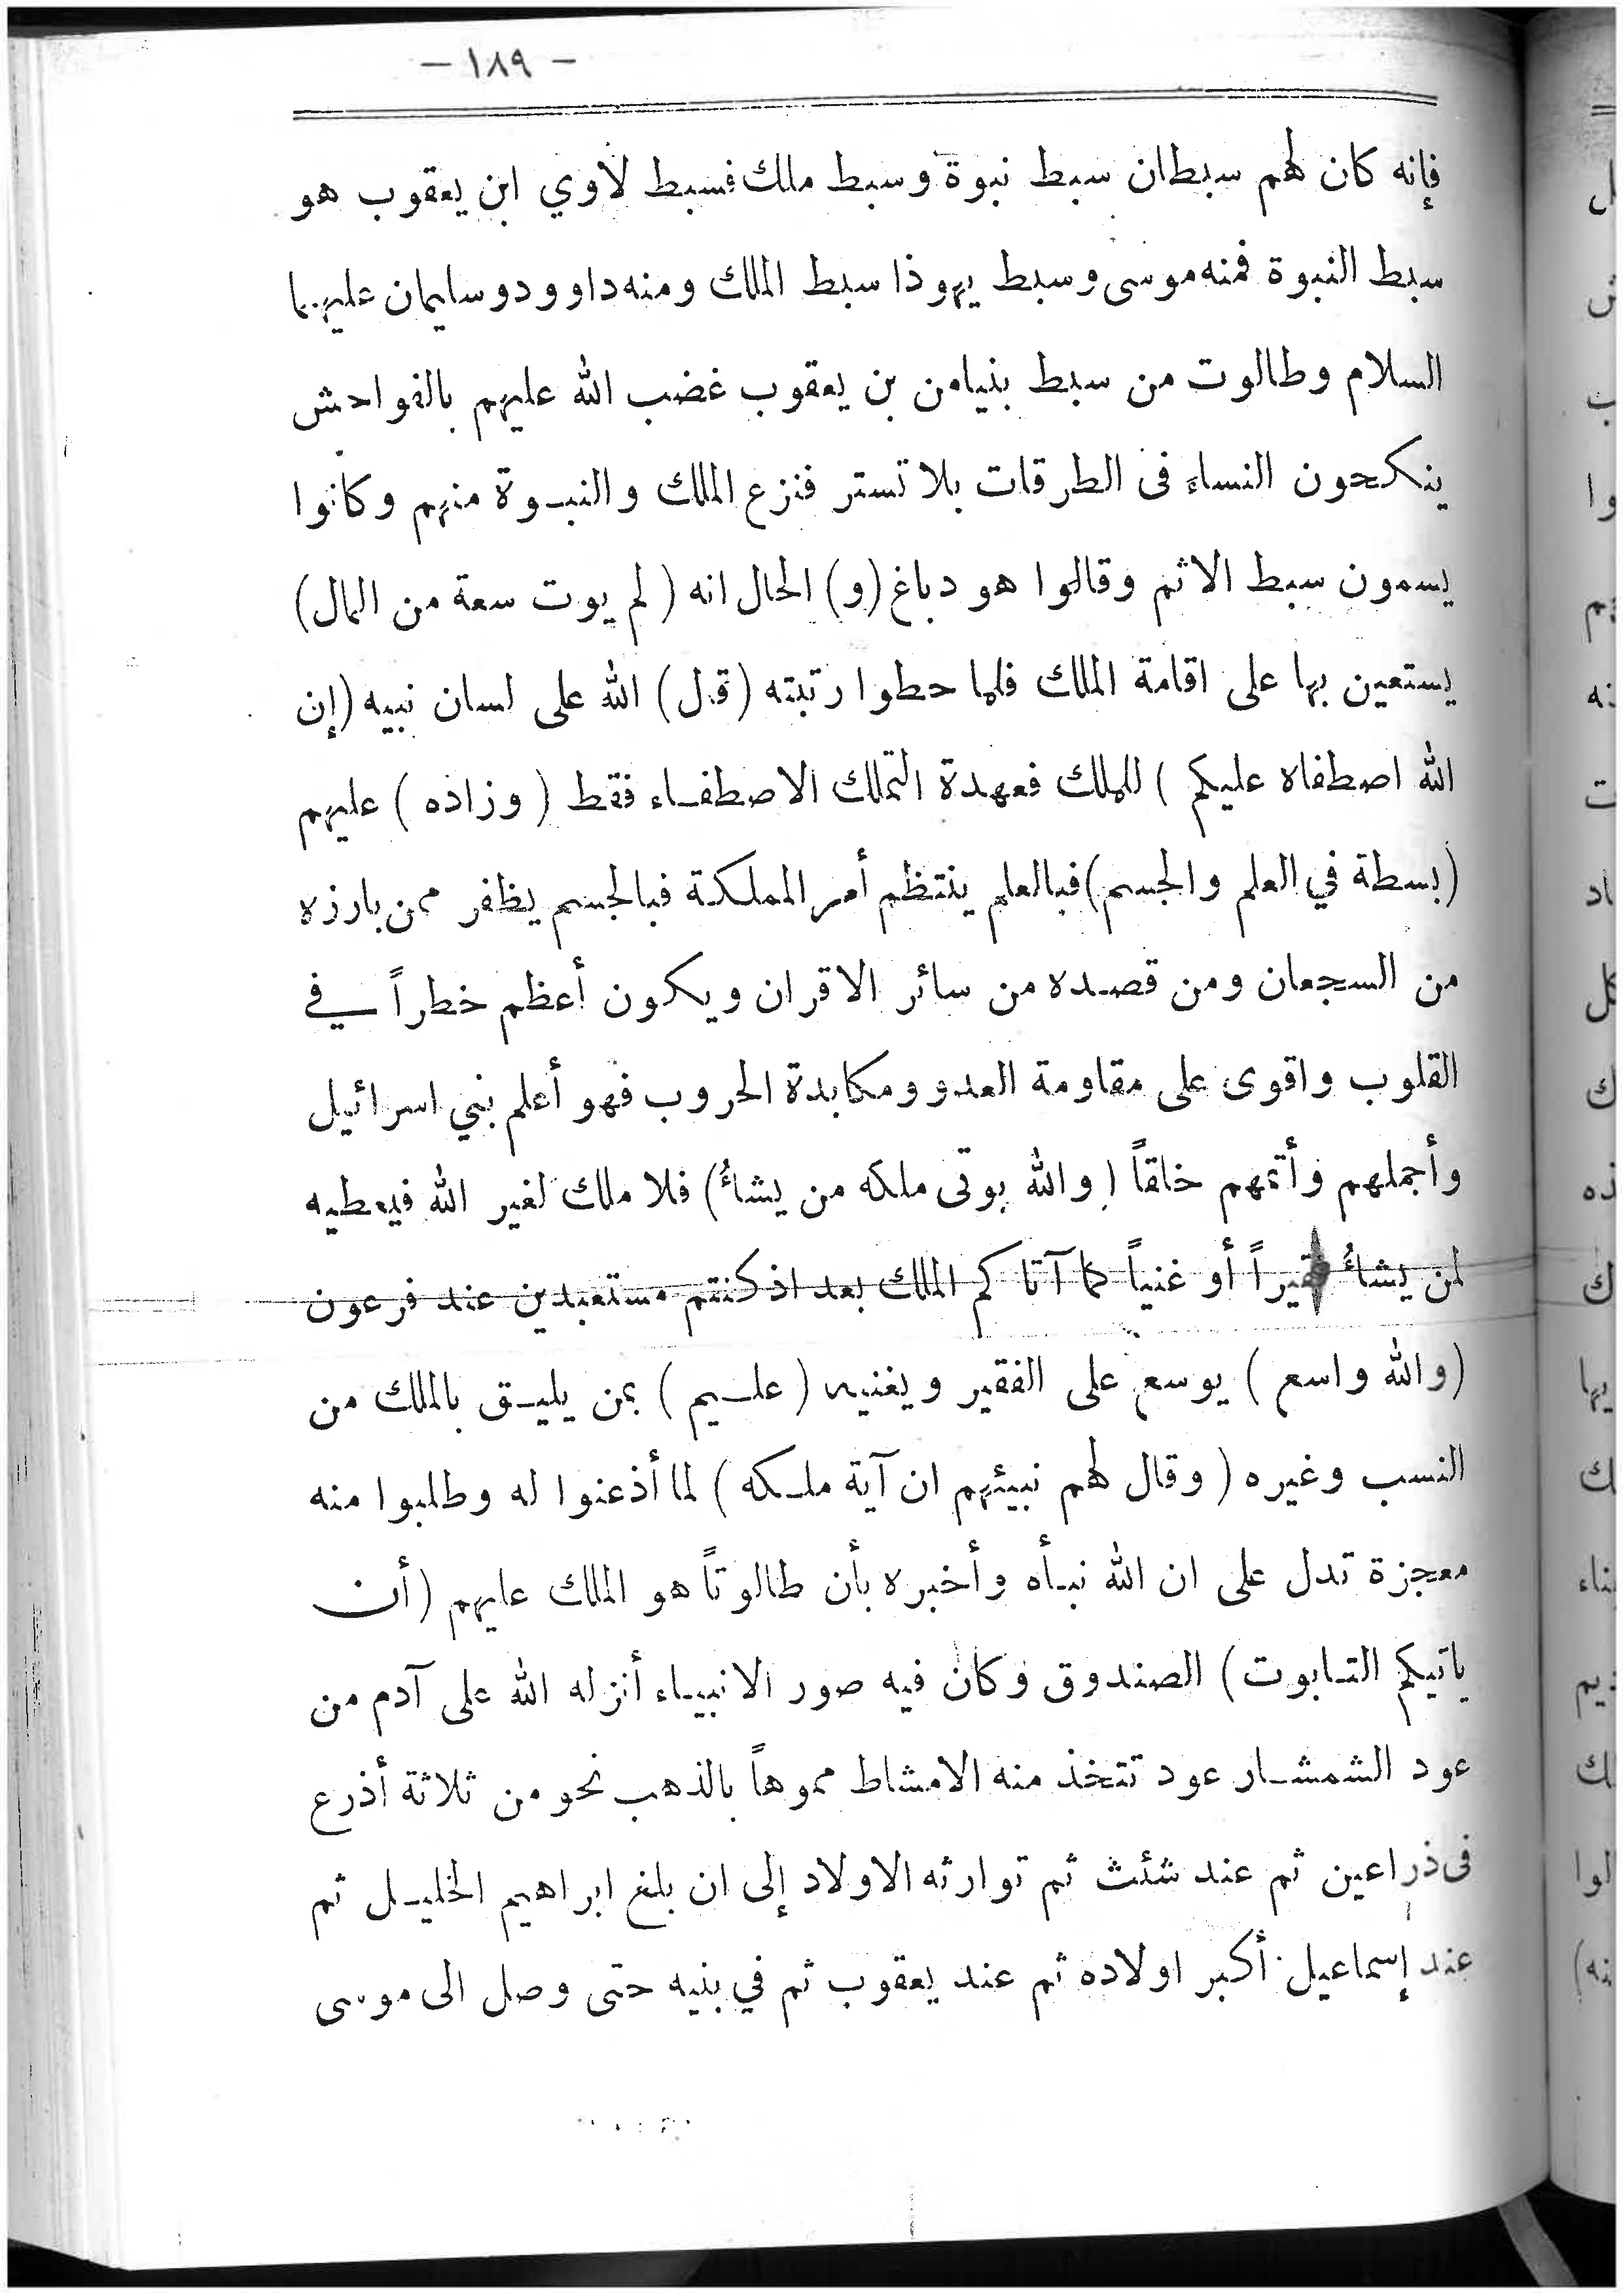 - ١٨٩ -
فإنه كان لهم سبطان سبط نبوة وسبط ملك فسبط لاوي ابن يعقوب هو
سبط النبوة فمنه موسى وسبط يهوذا سبط الملك ومنه داوود وسليمان عليهما
السلام وطالوت من سبط بنيامن بن يعقوب غضب الله عليهم بالفواحش
ينكحون النساء فى الطرقات بلا تستر فنزع الملك والنبوة منهم وكانوا
يسمون سبط الاثم وقالوا هو دباغ (و) الحال انه ( لم يوت سعة من المال)
يستعين بها على اقامة الملك فلما حطوا رتبته (قال) الله على لسان نبيه (إن
الله اصطفاه عليكم ) للملك فعهدة التملك الاصطفاء فقط ( وزاده ) عليهم
(بسطة في العلم والجسم) فبالعلم ينتظم أمر المملكة فبالجسم يظفر ممن بارزه
من السجعان ومن قصده من سائر الاقران ويكون أعظم خطراً في
القلوب واقوى على مقاومة العدو ومكابدة الحروب فهو أعلم بني اسرائيل
وأجملهم وأتمهم خلقاً ( والله يوتى ملكه من يشاءُ) فلا ملك لغير الله فيعطيه
لمن يشاءُ فقيراً أو غنياً كما آتاكم الملك بعد اذ كنتم مستعبدين عند فرعون
(والله واسع ) يوسع على الفقير ويغنيه (عليم ) بمن يليق بالملك من
النسب وغيره ( وقال لهم نبيئهم ان آية ملكه ) لما أذعنوا له وطلبوا منه
معجزة تدل على ان الله نبأه وأخبره بأن طالوتاً هو الملك عليهم (أن
ياتيكم التابوت ) الصندوق وكان فيه صور الانبياء أنزله الله على آدم من
عود الشمشار عود تتخذ منه الامشاط مموهاً بالذهب نحو من ثلاثة أذرع
فى ذراعين ثم عند شئث ثم توارثه الاولاد إلى ان بلغ ابراهيم الخليل ثم
عند إسماعيل أكبر اولاده ثم عند يعقوب ثم في بنيه حتى وصل الى موسى